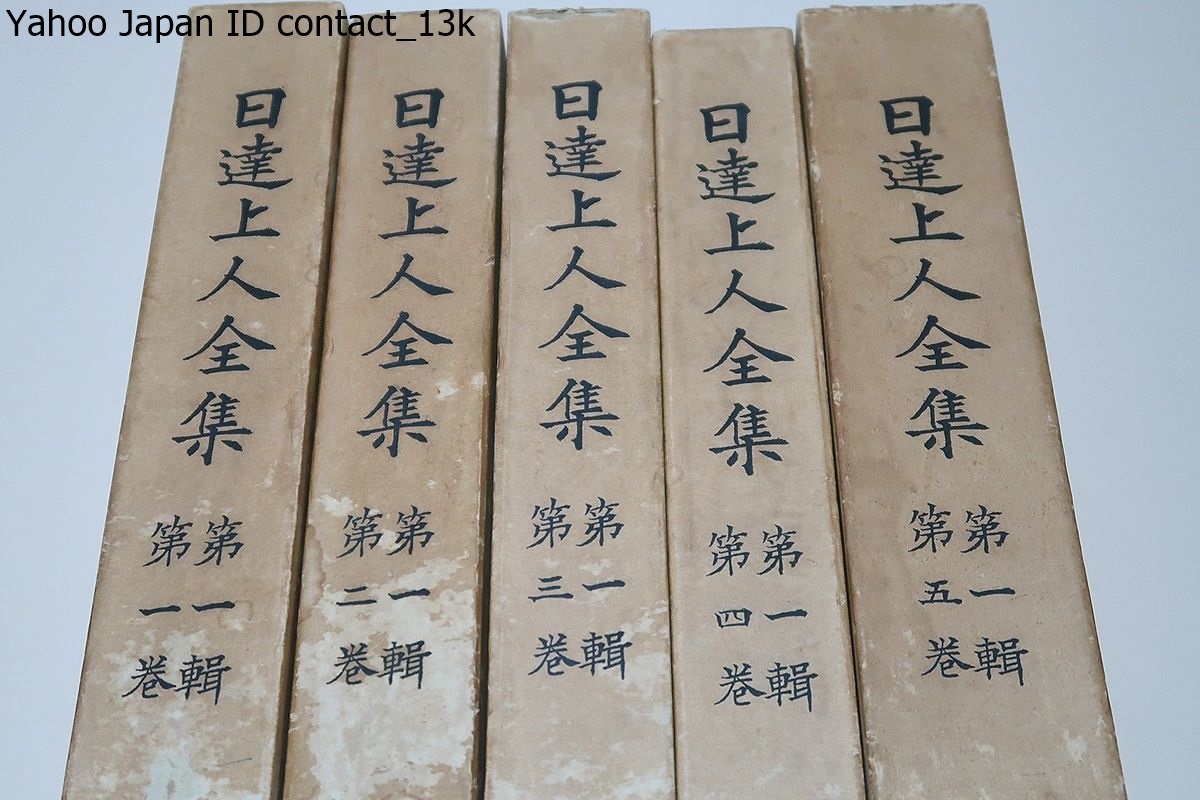 Yahoo Japan ID contact_13k
日達上人全集
第一輯
第一巻
日達上人全集
第一輯
第二巻
日達上人全集
第一輯
第三巻
日達上人全集
第一輯
第四巻
日達上人全集
第一輯
第五巻